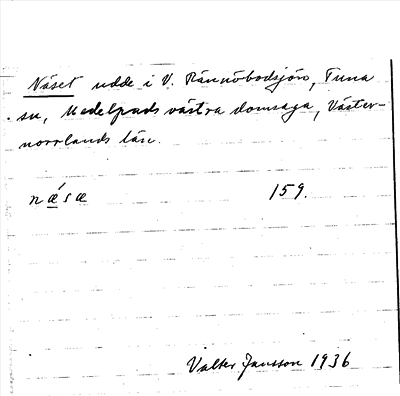 Näset udde i V. Rännöbodsjön, Tuna
sn, Medelpads västra domsaga, Väster-
norrlands län.
næ´sæ 159.
Valter Jansson 1936